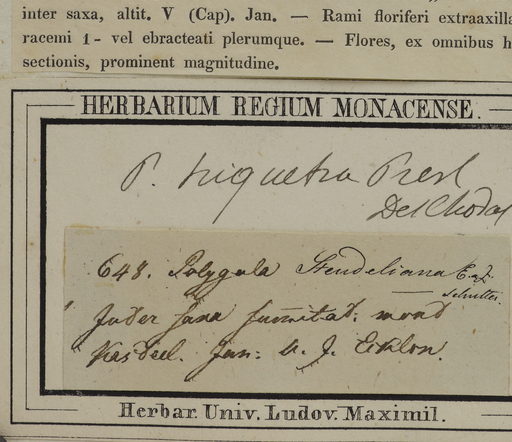 inter saxa, altit. V (Cap). Jan. — Rami floriferi extraaxilla
racemi 1- vel ebracteati plerumque. — Flores, ex omnibus h
sectionis, prominent magnitudine.
HERBARIUM REGIUM MONACENSE.
P. triquetra Presl
Det Chodat
648. Polygala Steudeliana E. Z.
Inter saxa summitat. mont
Kasteel. Jan: u. J. Eiklon.
Herbar. Univ. Ludov. Maximil.